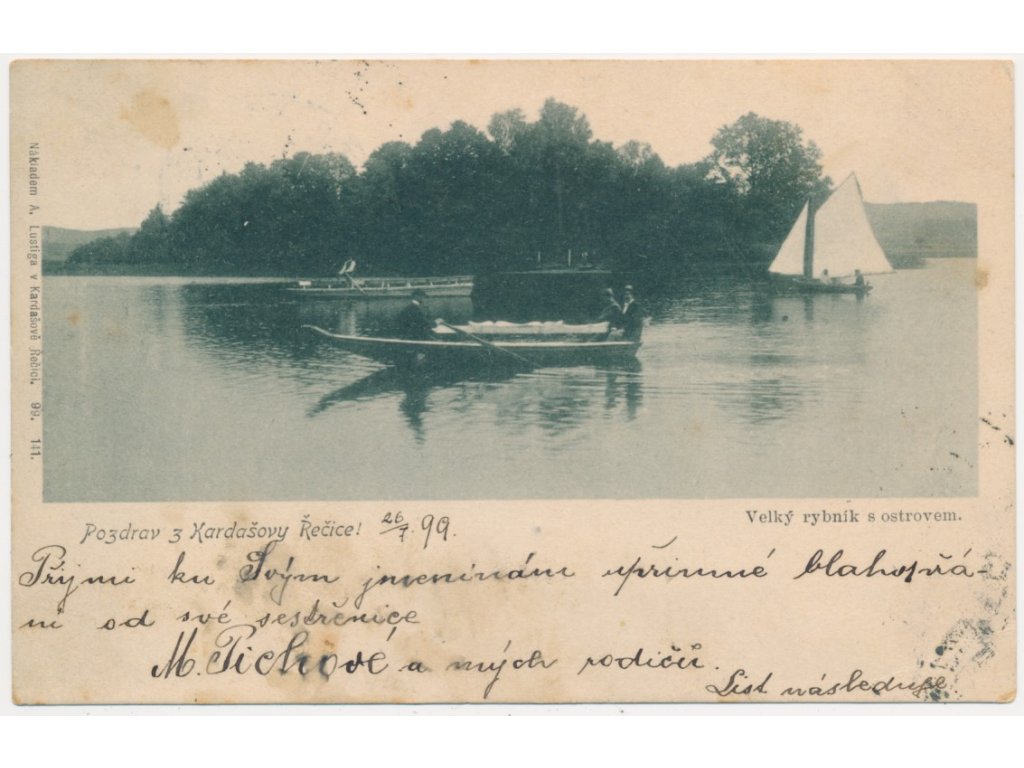 Nákladem A. Lustiga v Kardašově Řečici. 99. 141.
Pozdrav z Kardašovy Řečice! 26/7 99.
Velký rybník s ostrovem.
Přijmi ku Svým jmeninám upřimné blahopřá-
ní od své sestřenice
M. Pichové a mých rodičů.
List následuje